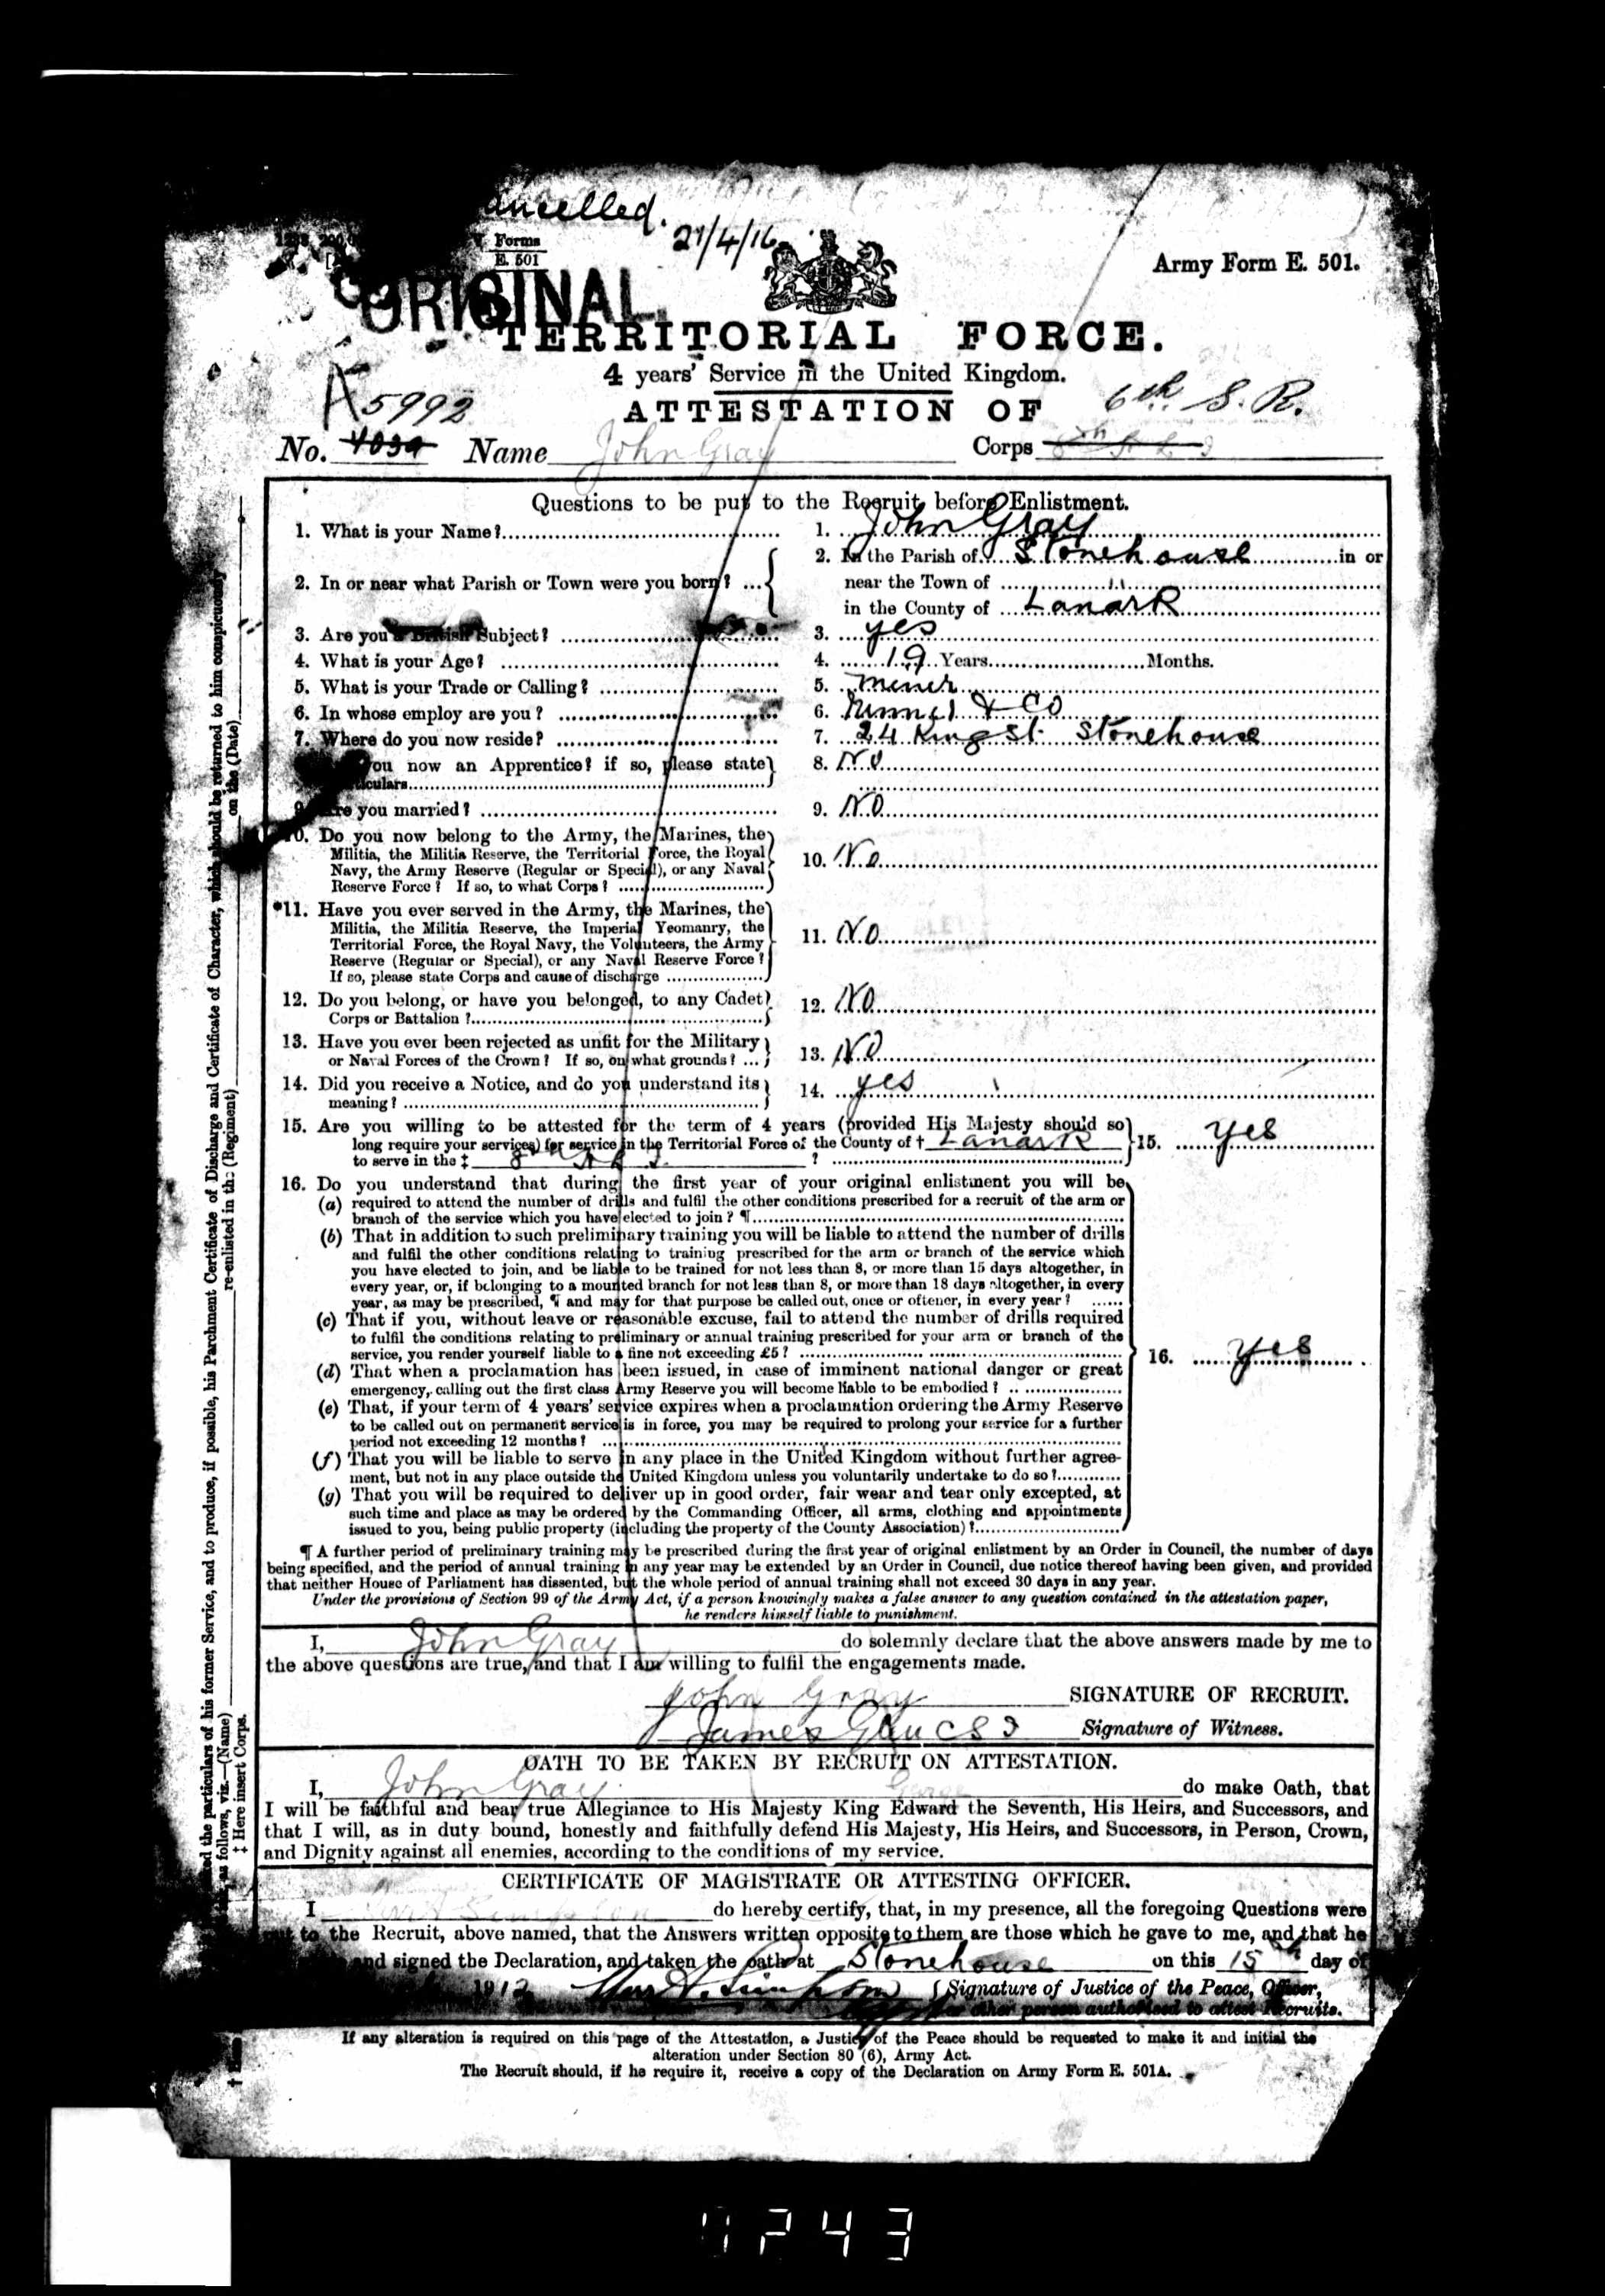 ancelled.
21/4/16
Forms
E. 501
Army Form E. 501.
ORIGINAL.
TERRITORIAL FORCE.
4 years' Service in the United Kingdom.
5992
6th. S. R.
ATTESTATION OF
No. Name John Gray Corps
Questions to be put to the Recruit before Enlistment.
1. What is your Name? 1. John Gray
2. In or near what Parish or Town were you born? ... 2. In the Parish of Stonehouse in or
near the Town of "
in the County of Lanark
3. Are you a British Subject? 3. yes
4. What is your Age? 4. 19 Years Months.
5. What is your Trade or Calling? 5. Miner
6. In whose employ are you? 6. & Co
7. Where do you now reside? 7. 24 King St. Stonehouse
you now an Apprentice? if so, please state 8. No
culars
9. Are you married? 9. No
10. Do you now belong to the Army, the Marines, the
Militia, the Militia Reserve, the Territorial Force, the Royal
Navy, the Army Reserve (Regular or Special), or any Naval
Reserve Force? If so, to what Corps? 10. No
*11. Have you ever served in the Army, the Marines, the
Militia, the Militia Reserve, the Imperial Yeomanry, the
Territorial Force, the Royal Navy, the Volunteers, the Army
Reserve (Regular or Special), or any Naval Reserve Force?
If so, please state Corps and cause of discharge 11. No
12. Do you belong, or have you belonged, to any Cadet
Corps or Battalion? 12. No
13. Have you ever been rejected as unfit for the Military
or Naval Forces of the Crown? If so, on what grounds? ... 13. No
14. Did you receive a Notice, and do you understand its
meaning? 14. yes
15. Are you willing to be attested for the term of 4 years (provided His Majesty should so
long require your services) for service in the Territorial Force of the County of † Lanark 15. yes
to serve in the ‡ 8th ?
16. Do you understand that during the first year of your original enlistment you will be
(a) required to attend the number of drills and fulfil the other conditions prescribed for a recruit of the arm or
branch of the service which you have elected to join? ¶
(b) That in addition to such preliminary training you will be liable to attend the number of drills
and fulfil the other conditions relating to training prescribed for the arm or branch of the service which
you have elected to join, and be liable to be trained for not less than 8, or more than 15 days altogether, in
every year, or, if belonging to a mounted branch for not less than 8, or more than 18 days altogether, in every
year, as may be prescribed, ¶ and may for that purpose be called out, once or oftener, in every year?
(c) That if you, without leave or reasonable excuse, fail to attend the number of drills required
to fulfil the conditions relating to preliminary or annual training prescribed for your arm or branch of the
service, you render yourself liable to a fine not exceeding £5?
16. yes
(d) That when a proclamation has been issued, in case of imminent national danger or great
emergency, calling out the first class Army Reserve you will become liable to be embodied?
(e) That, if your term of 4 years' service expires when a proclamation ordering the Army Reserve
to be called out on permanent service is in force, you may be required to prolong your service for a further
period not exceeding 12 months?
(f) That you will be liable to serve in any place in the United Kingdom without further agree-
ment, but not in any place outside the United Kingdom unless you voluntarily undertake to do so?
(g) That you will be required to deliver up in good order, fair wear and tear only excepted, at
such time and place as may be ordered by the Commanding Officer, all arms, clothing and appointments
issued to you, being public property (including the property of the County Association)?
¶ A further period of preliminary training may be prescribed during the first year of original enlistment by an Order in Council, the number of days
being specified, and the period of annual training in any year may be extended by an Order in Council, due notice thereof having been given, and provided
that neither House of Parliament has dissented, but the whole period of annual training shall not exceed 30 days in any year.
Under the provisions of Section 99 of the Army Act, if a person knowingly makes a false answer to any question contained in the attestation paper,
he renders himself liable to punishment.
I, John Gray do solemnly declare that the above answers made by me to
the above questions are true, and that I am willing to fulfil the engagements made.
John Gray SIGNATURE OF RECRUIT.
James Signature of Witness.
OATH TO BE TAKEN BY RECRUIT ON ATTESTATION.
I, John Gray. George do make Oath, that
I will be faithful and bear true Allegiance to His Majesty King Edward the Seventh, His Heirs, and Successors, and
that I will, as in duty bound, honestly and faithfully defend His Majesty, His Heirs, and Successors, in Person, Crown,
and Dignity against all enemies, according to the conditions of my service.
CERTIFICATE OF MAGISTRATE OR ATTESTING OFFICER.
I do hereby certify, that, in my presence, all the foregoing Questions were
put to the Recruit, above named, that the Answers written opposite to them are those which he gave to me, and that he
and signed the Declaration, and taken the oath at Stonehouse on this 15th day of
Signature of Justice of the Peace, Officer,
or other person authorised to attest Recruits.
If any alteration is required on this page of the Attestation, a Justice of the Peace should be requested to make it and initial the
alteration under Section 80 (6), Army Act.
The Recruit should, if he require it, receive a copy of the Declaration on Army Form E. 501A.
the particulars of his former Service, and to produce, if possible, his Parchment Certificate of Discharge and Certificate of Character, which should be returned to him conspicuously
as follows, viz.—(Name) re-enlisted in the (Regiment) on the (Date)
‡ Here insert Corps.
243